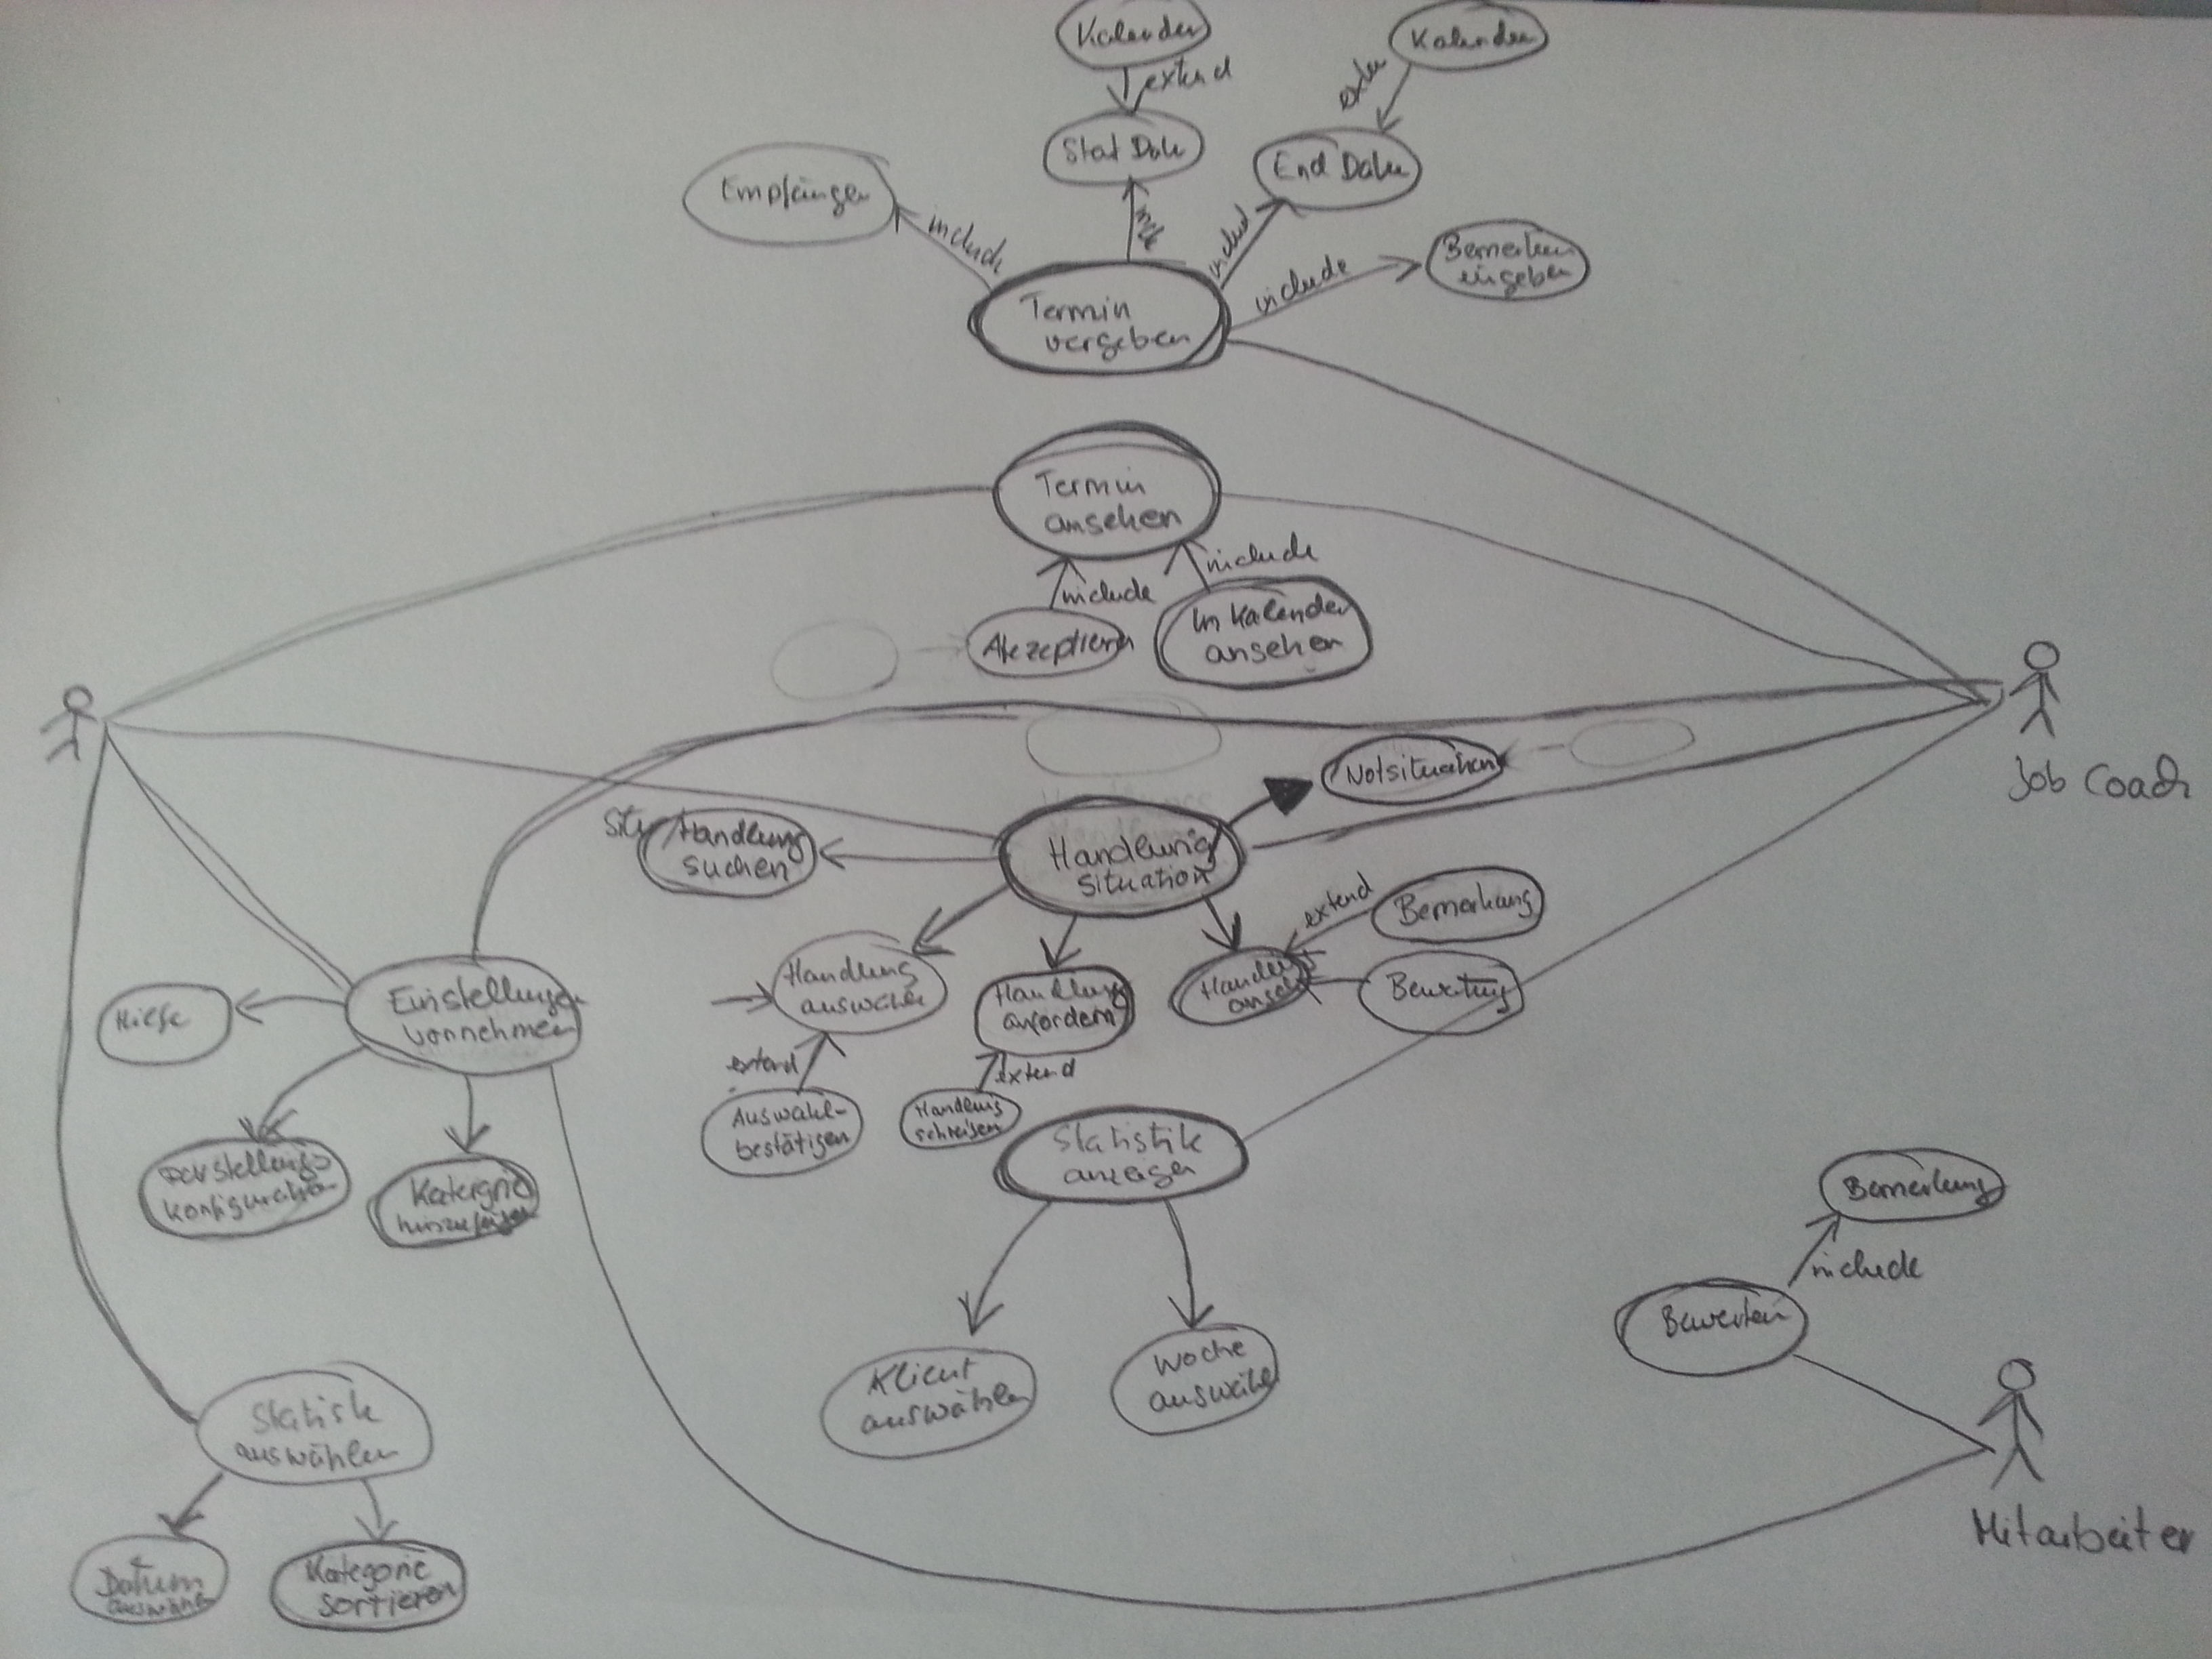 Kalender
Kalender
extend
Start Date
End Date
Empfänger
include
include
include
Bemerken
eingeben
Termin
vergeben
Termin
ansehen
include
include
Akzeptieren
In Kalender
ansehen
Job Coach
Notsituation
Handlung
suchen
Handlung
situation
extend
Bemerkung
Handlung
auswählen
Handlung
anfordern
Bewertung
Hilfe
Einstellungen
vornehmen
extend
extend
Auswahl-
bestätigen
Handlung
schreiben
Statistik
anzeigen
Darstellungs
konfiguration
Katergorie
hinzufügen
Bemerkung
include
Bewerten
Klient
auswählen
Woche
auswähl
Statisk
auswählen
Mitarbeiter
Datum
auswählen
Kategorie
sortieren